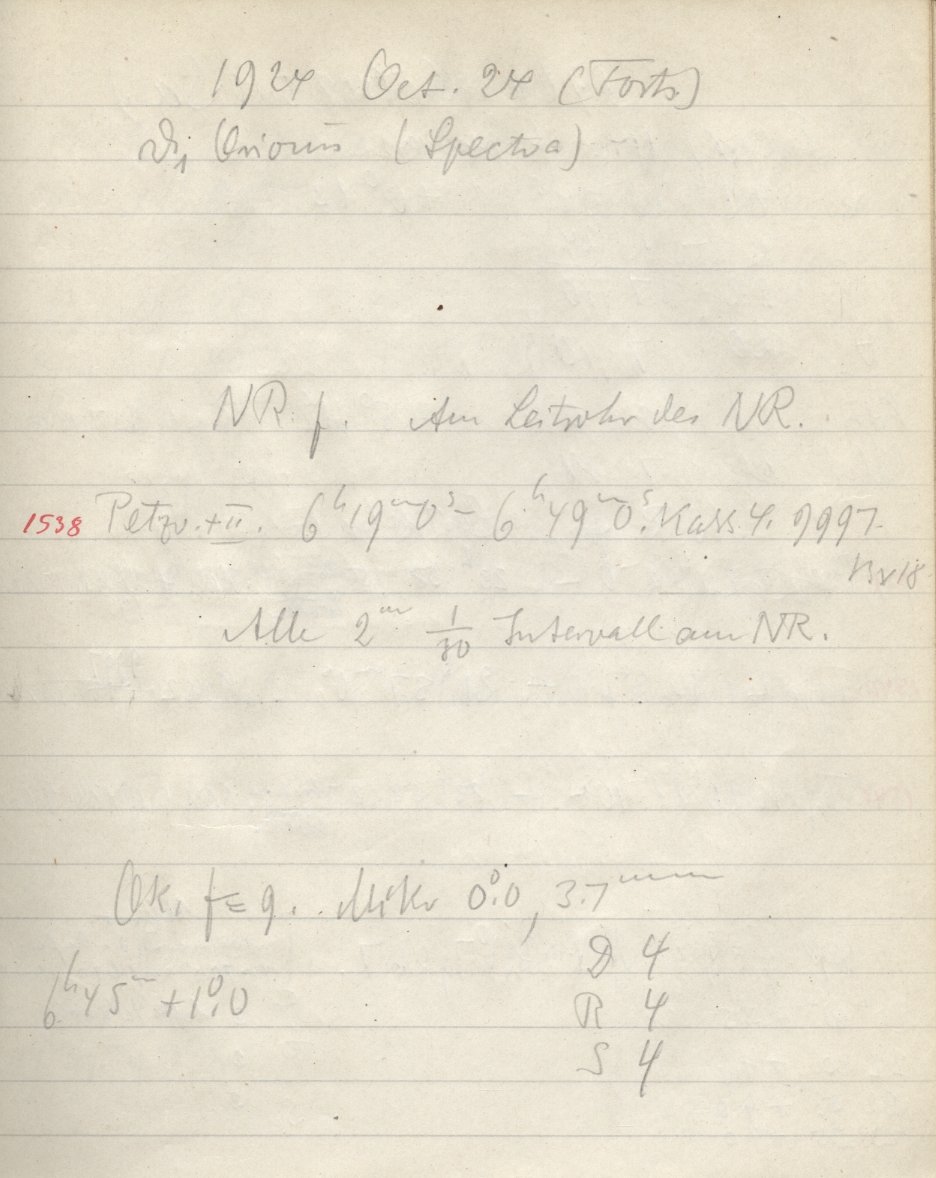 1924 Oct. 24 (Forts)
ϑ₁ Orionis (Spectra)
NR. f. Am Leitrohr des NR.
1538 Petzv. + II. 6ʰ19ᵐ0ˢ – 6ʰ49ᵐ0ˢ. Kass. 4. 9997.
18
Alle 2ᵐ 1/30 Intervall am NR.
Ok. f = 9. Mikr 0°.0, 3.7ᵐᵐ
D 4
6ʰ45ᵐ +1°.0 R 4
S 4